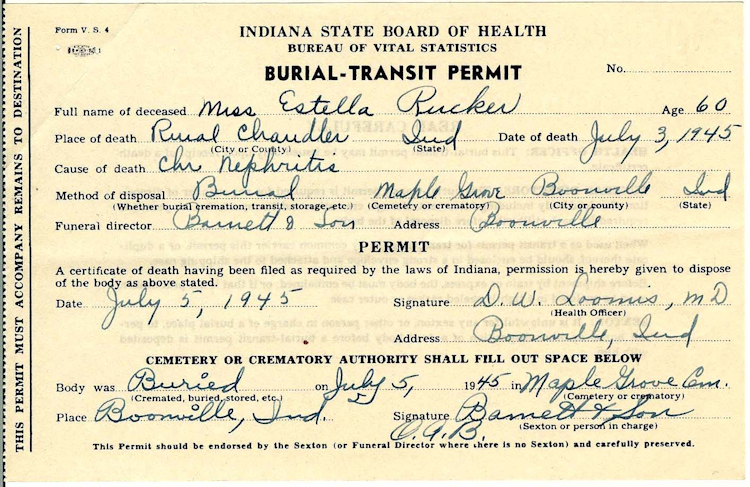 Form V. S. 4
INDIANA STATE BOARD OF HEALTH
BUREAU OF VITAL STATISTICS
BURIAL-TRANSIT PERMIT
No.
Full name of deceased Miss Estella Rucker Age 60
Place of death Rural Chandler Ind Date of death July 3, 1945
(City or County) (State)
Cause of death Chr Nephritis
Method of disposal Burial Maple Grove Boonville Ind
(Whether burial, cremation, transit, storage, etc.) (Cemetery or crematory) (City or county) (State)
Funeral director Barnett & Son Address Boonville
PERMIT
A certificate of death having been filed as required by the laws of Indiana, permission is hereby given to dispose
of the body as above stated.
Date July 5, 1945 Signature D. W. Loomis, MD
(Health Officer)
Address Boonville, Ind
CEMETERY OR CREMATORY AUTHORITY SHALL FILL OUT SPACE BELOW
Body was Buried on July 5, 1945 in Maple Grove Cem.
(Cremated, buried, stored, etc.) (Cemetery or crematory)
Place Boonville, Ind. Signature Barnett & Son
(Sexton or person in charge)
O.A.B.
This Permit should be endorsed by the Sexton (or Funeral Director where there is no Sexton) and carefully preserved.
THIS PERMIT MUST ACCOMPANY REMAINS TO DESTINATION